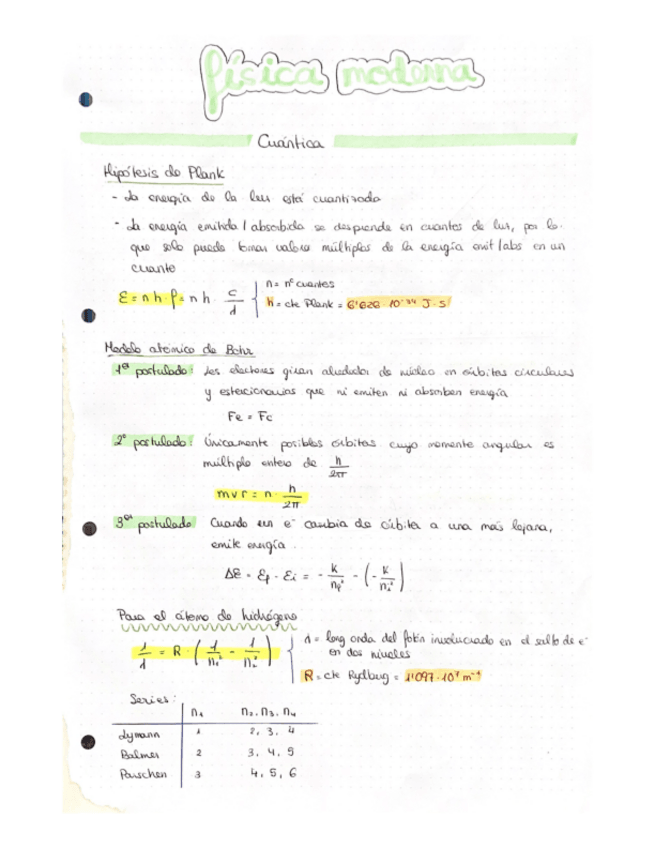 física moderna
Cuántica
Hipótesis de Plank
- La energía de la luz está cuantizada
- La energía emitida / absorbida se desprende en cuantos de luz, por lo
que solo puede tomar valores múltiplos de la energía emit/abs en un
cuanto
E = n h · f = n h · c/λ
n = nº cuantos
h = cte Plank = 6'626 · 10⁻³⁴ J·s
Modelo atómico de Bohr
1er postulado: Los electrones giran alrededor de núcleo en órbitas circulares
y estacionarias que ni emiten ni absorben energía
Fe = Fc
2º postulado: Únicamente posibles órbitas cuyo momento angular es
múltiplo entero de h/2π
m v r = n · h/2π
3er postulado Cuando un e⁻ cambia de órbita a una más lejana,
emite energía.
ΔE = Ef - Ei = - k/nf² - (- k/ni²)
Para el átomo de hidrógeno
1/λ = R · (1/n₁² - 1/n₂²)
λ = long onda del fotón involucrado en el salto de e⁻
en dos niveles
R = cte Rydberg = 1'097 · 10⁷ m⁻¹
Series:
n₁ n₂, n₃, n₄
Lymann 1 2, 3, 4
Balmer 2 3, 4, 5
Paschen 3 4, 5, 6